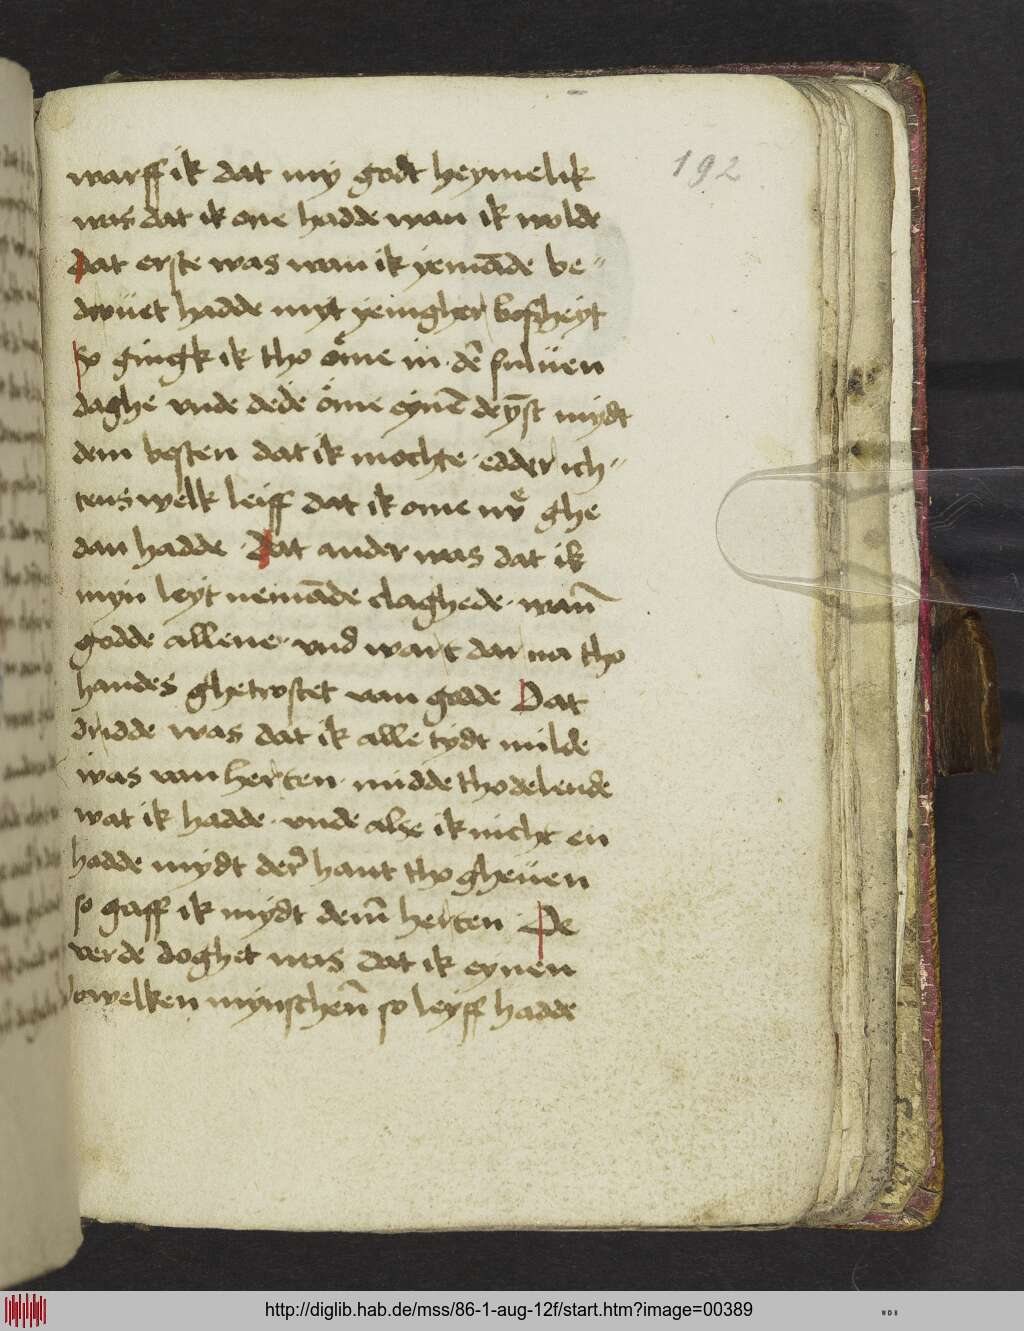 192
warff ik dat my godt heymelik
was dat ik one hadde wan ik wolde
Dat erste was wan ik yemāde be⸗
drouet hadde myt yenigher bosheyt
so gingk ik tho ome in der suluen
daghe vnde dede ome eynē deyst mydt
dem besten dat ik mochte · edder ich⸗
teswelk leiff dat ik ome ny ghe
dan hadde · Dat ander was dat ik
myn leyt nemāde claghede · wan̄
godde allene · vnd wart dar na tho
handes ghetrostet van godde Dat
drudde was dat ik alle tydt milde
was van herten · midde tho delende
wat ik hadde · vnde alse ik nicht en
hadde mydt der hant tho gheuen
so gaff ik mydt dem̄ herten De
verde doghet was dat ik eynen
iowelken mynschen̄ so leyff hadde
http://diglib.hab.de/mss/86-1-aug-12f/start.htm?image=00389